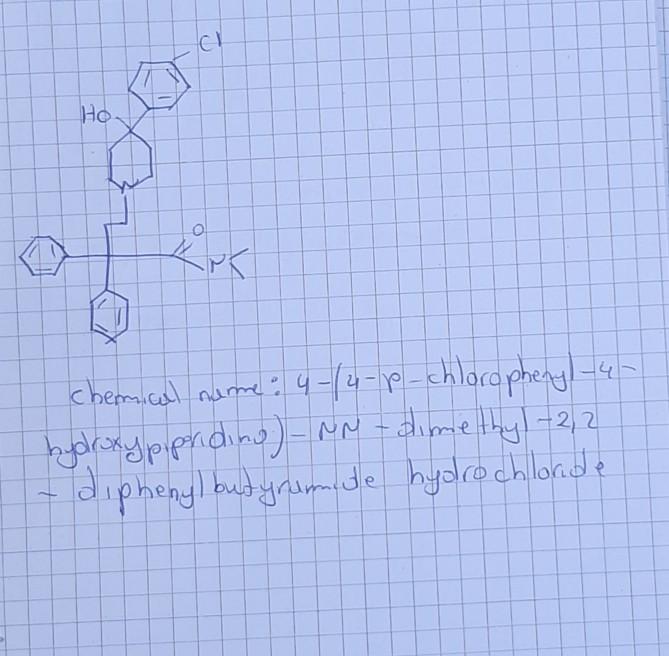 Cl
HO
N
O
N
chemical name: 4-(4-p-chlorophenyl-4-
hydroxypiperidino)-NN-dimethyl-2,2
-diphenylbutyramide hydrochloride